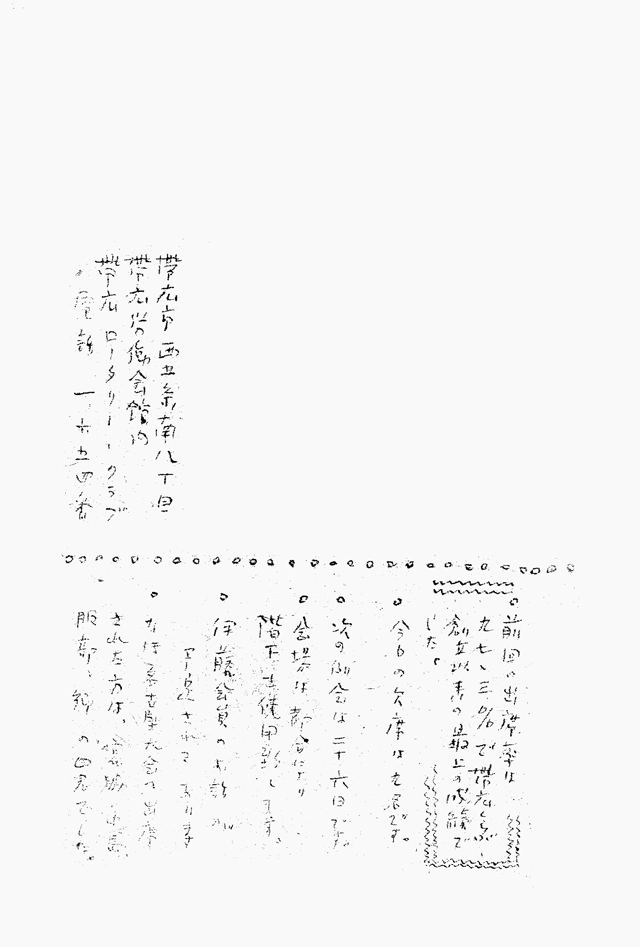 帯広市西五条南八丁目
帯広労働会館内
帯広ロータリークラブ
電話 一、六五四番
前回の出席率は
九七、三%で帯広クラブ
創立以来の最上の成績で
した。
今日の欠席は七名です。
次の例会は二十六日です。
会場は都合により
階下を使用致します。
伊藤会員のお話が
予定されて あります
なほ 大会の出席
された方は、
服部、 の四名でした。